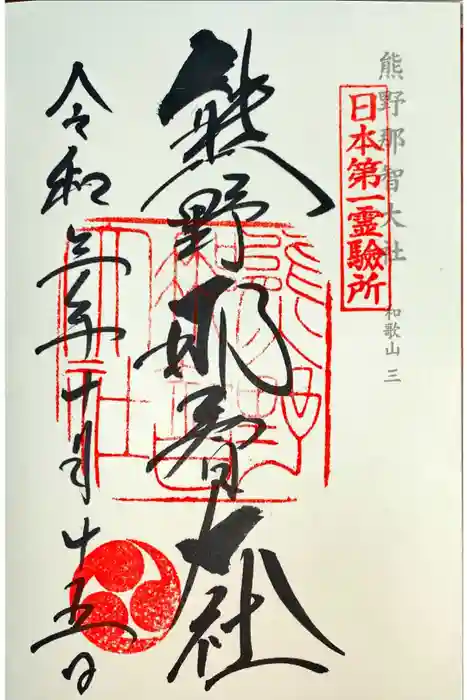 熊野那智大社
和歌山 三
日本第一霊驗所
熊野那智大社
令和三年十月十五日
熊野那智大社